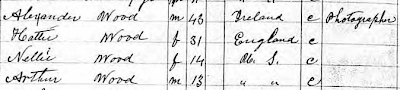 Alexander Wood m 43 Ireland c Photographer
Hattie Wood f 31 England c
Nellie Wood f 14 U. S. c
Arthur Wood m 13 " " c